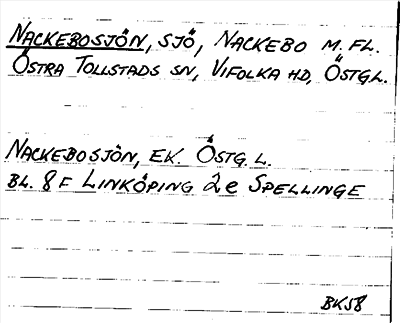 NACKEBOSJÖN, SJÖ, NACKEBO M. FL.
ÖSTRA TOLLSTADS SN, VIFOLKA HD, ÖSTGL.
NACKEBOSJÖN, EK. ÖSTG. L.
BL. 8 F LINKÖPING 2e SPELLINGE
BK58